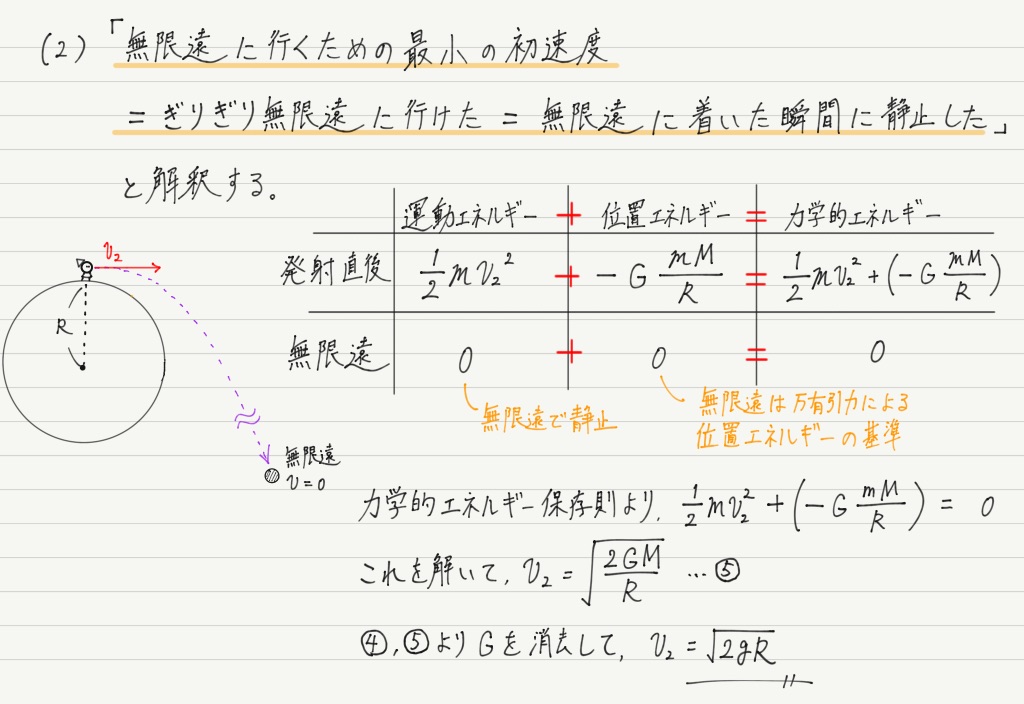 (2)「無限遠に行くための最小の初速度
= ぎりぎり無限遠に行けた = 無限遠に着いた瞬間に静止した」
と解釈する。
運動エネルギー + 位置エネルギー = 力学的エネルギー
発射直後 1/2 mv₂² + −G mM/R = 1/2 mv₂² + (−G mM/R)
無限遠 0 + 0 = 0
無限遠で静止
無限遠は万有引力による
位置エネルギーの基準
v₂
R
無限遠
v=0
力学的エネルギー保存則より, 1/2 mv₂² + (−G mM/R) = 0
これを解いて, v₂ = √(2GM/R) … ⑤
④,⑤よりGを消去して, v₂ = √(2gR)